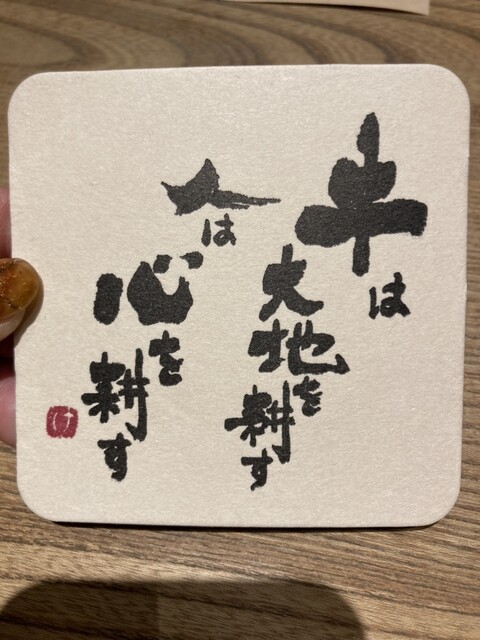 牛は
大地を
耕す
人は
心を
耕す
け